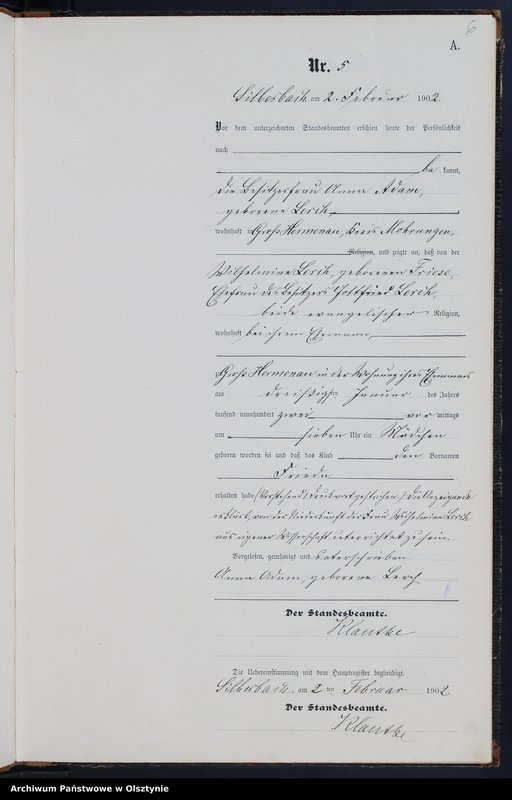 6
A.
Nr. 5
Silberbach am 2. Februar 1902
Vor dem unterzeichneten Standesbeamten erschien heute der Persönlichkeit
nach
be kannt,
die Besitzerfrau Anna Adam,
geborene Lerch,
wohnhaft in Groß Hermenau, Kreis Mohrungen,
Religion, und zeigte an, daß von der
Wilhelmine Lerch, geborenen Friese,
Ehefrau des Besitzers Gottfried Lerch,
beide evangelischer Religion,
wohnhaft bei ihrem Ehemann,
zu Groß Hermenau in der Wohnung ihres Ehemannes
am dreißigsten Januar des Jahres
tausend neunhundert zwei vor mittags
um sieben Uhr ein Mädchen
geboren worden sei und daß das Kind den Vornamen
Frieda
erhalten habe. Vorstehend Druckwort gestrichen. Die Anzeigende
erklärt, von der Niederkunft der Frau Wilhelmine Lerch
aus eigener Wissenschaft unterrichtet zu sein.
Vorgelesen, genehmigt und unterschrieben
Anna Adam, geborene Lerch
Der Standesbeamte.
Klautke
Die Uebereinstimmung mit dem Hauptregister beglaubigt.
Silberbach am 2 ten Februar 1902
Der Standesbeamte.
Klautke
Archiwum Państwowe w Olsztynie